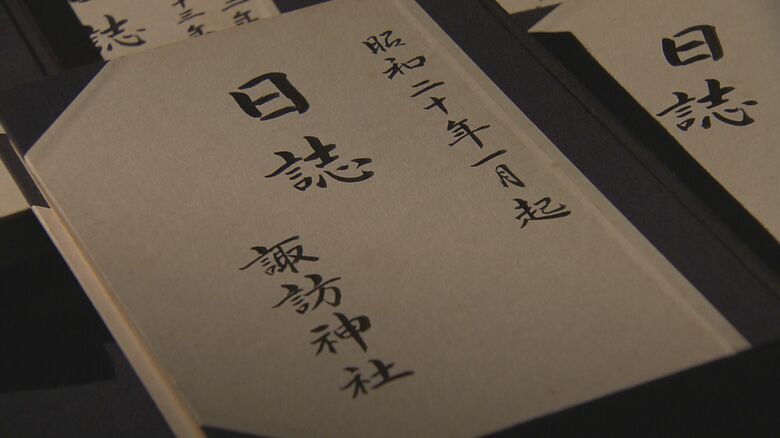 昭和二十年一月起
日誌
諏訪神社
日誌
誌
十三年
三年